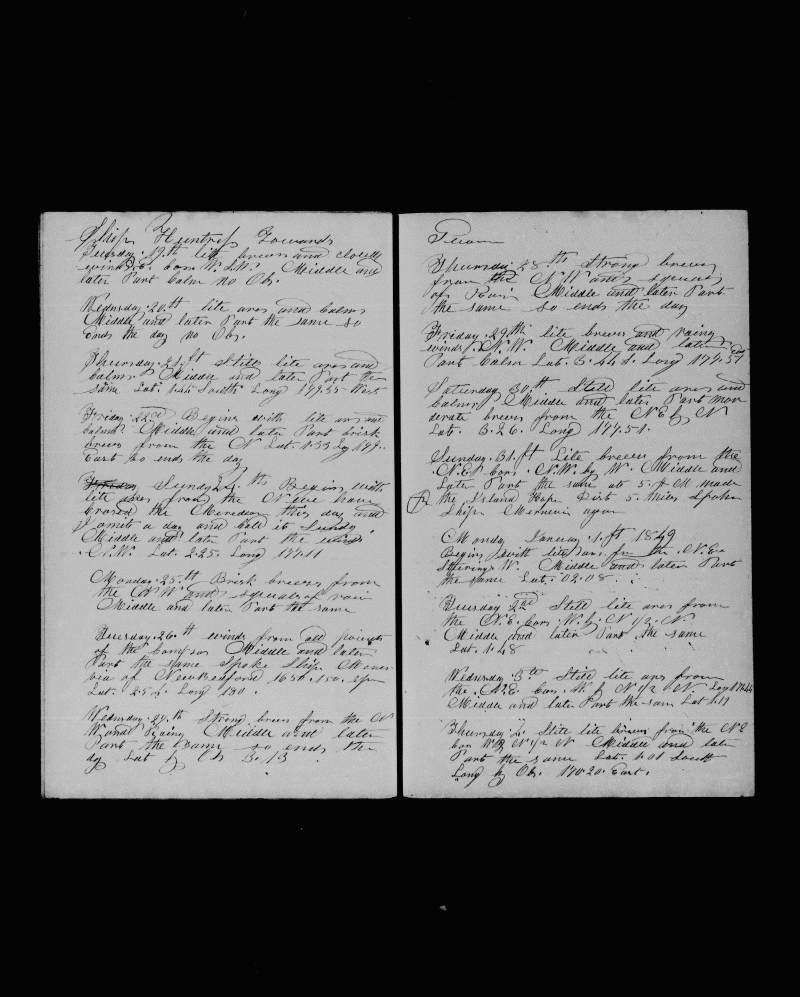 Ship Huntress Towards
Tuesday 19th lite brees and cloude
wind Cors W.S.W. Middle and
later Part Calm no Obs.
Wednsday 20th lite ares and Calms
Middle and later Part the same so
Ends the day no Obs.
Thursday 21st Still lite ares and
Calms Middle and later Part the
same Lat. 1.44 South Long 179.35 West
Friday 22nd Begins with lite ars and
Calms Middle and later Part brisk
brees from the N Lat. 1.33 Lg 179..
East, so ends the day
Sunday 24th Begins with
lite ares from the N.E we have
Crosed the Meredian this day and
I omit a day and Call it Sunday
Middle and later Part the winds
N.W. Lat. 2.25. Long 177.11
Monday 25th Brisk breeses from
the N W and squals of rain
Middle and later Part the same
Tuesday 26th winds from all points
of the Compas Middle and later
Part the same Spoke Ship
of New Bedford 1650. 150. spm
Lat. 2.54. Long 180.
Wednsday 27th Strong brees from the N
W and Rainy Middle and later
Part the same so ends the
dy Lat by Obs 3.13
Thursday 28th Strong brees
from the N W and squals
of Rain Middle and later Part
the same so ends the day
Friday 29th lite brees and rainy
winds N.W. Middle and later
Part Calm Lat. 3.44 S. Long 177.57
Saturday 30th Still lite ares and
Calms Middle and later Part mor
derate brees from the N E by N
Lat. 3.26. Long 177.51.
Sunday 31.st Lite breese from the
N.E. Cors. N.W. by W. Middle and
Later Part the same at 5. P M made
the Island Hope Dist 5 Miles Spoken
Ship again
Monday January 1.st 1849
Begins with lite from the N.E.
Stering W. Middle and later Part
the same Lat. 02.08
Tuesday 2nd Still lite ares from
the N.E. Cors. W. by N 1/2 N
Middle and later Part the same
Lat. 1.48
Wednsday 3rd Still lite ars from
the N.E. Cors. W. by N 1/2 N. Long 171.44
Middle and later Part the sam Lat 1.17
Thursday 4 Still lite brees from the N E
Cors W by N 1/2 N Middle and late
Part the same Lat. 1.01 South
Long by Obs. 170.20. East.